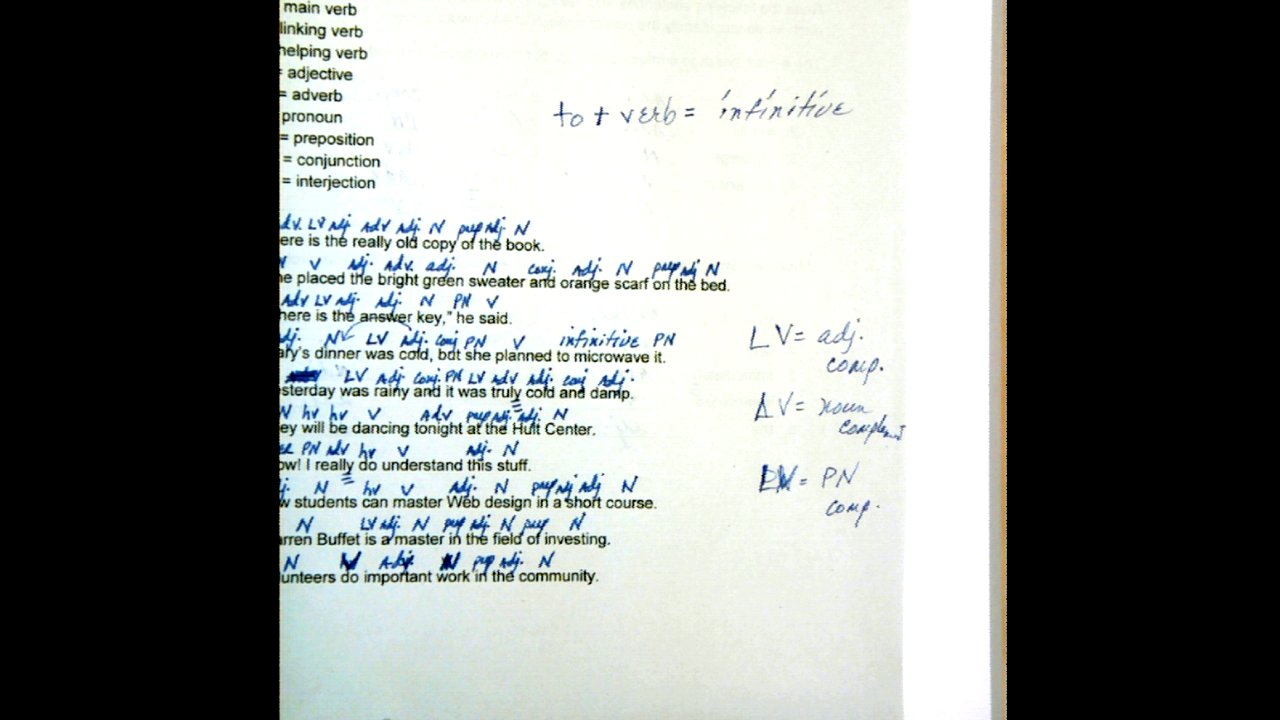 main verb
linking verb
helping verb
= adjective
= adverb
pronoun
= preposition
= conjunction
= interjection
to + verb = infinitive
adv. LV adj. adv adj. N prep adj. N
ere is the really old copy of the book.
N V adj. adv. adj. N conj. adj. N prep adj N
he placed the bright green sweater and orange scarf on the bed.
adv LV adj. adj. N PN V
here is the answer key," he said.
adj. N LV adj. conj PN V infinitive PN
ary's dinner was cold, but she planned to microwave it.
LV adj conj. PN LV adv adj. conj adj.
sterday was rainy and it was truly cold and damp.
N hv hv V adv prep adj. adj. N
ey will be dancing tonight at the Hult Center.
PN adv hv V adj. N
ow! I really do understand this stuff.
j. N hv V adj. N prep adj adj N
w students can master Web design in a short course.
N LV adj. N prep adj. N prep N
arren Buffet is a master in the field of investing.
N V adj N prep adj. N
unteers do important work in the community.
LV = adj.
comp.
LV = noun
complement
LV = PN
comp.